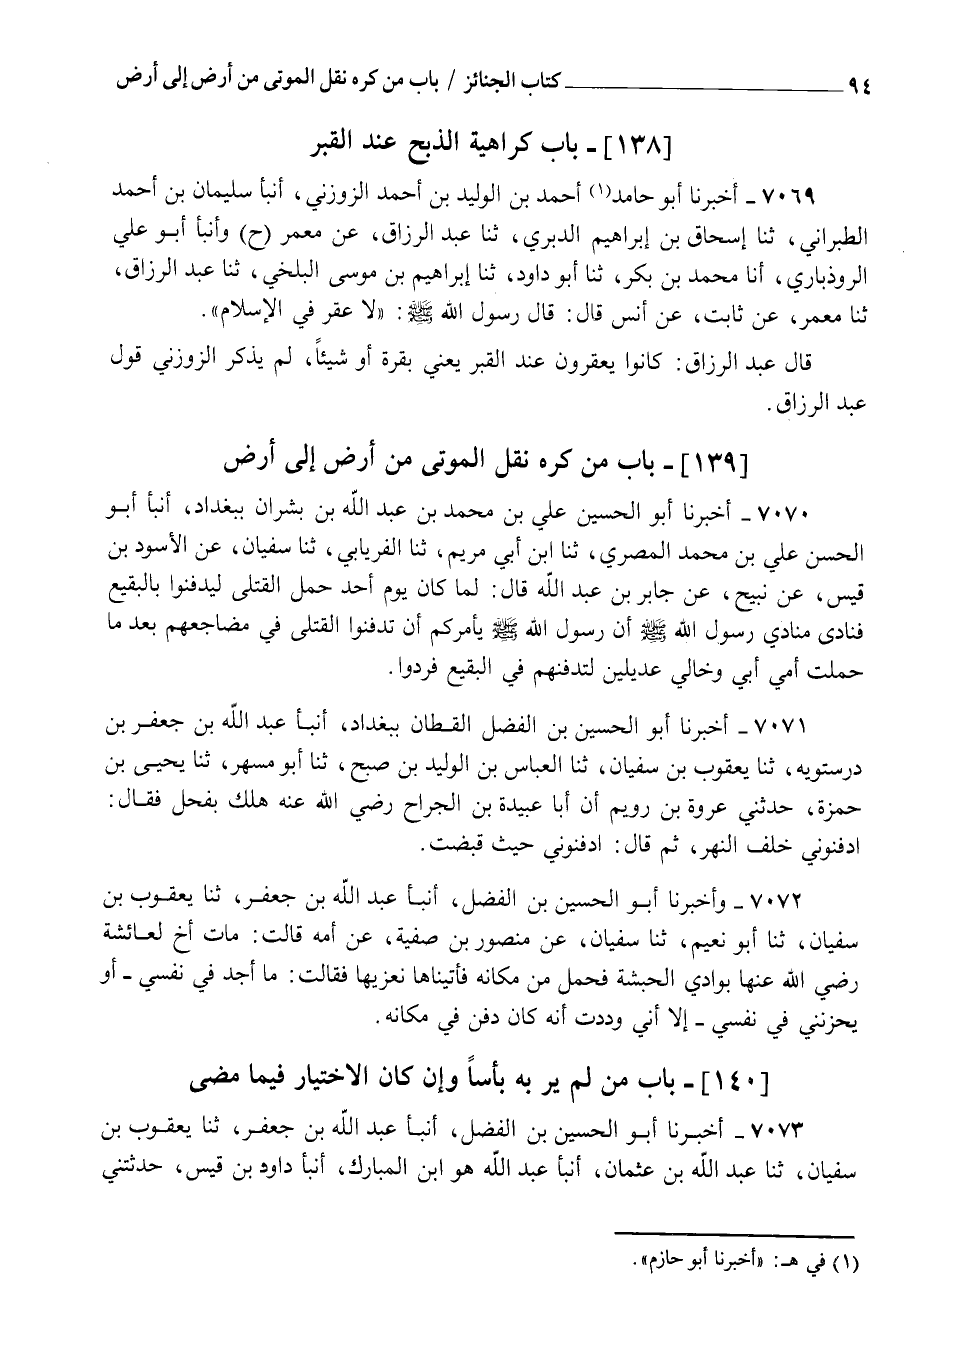 ٩٤ كتاب الجنائز / باب من كره نقل الموتى من أرض إلى أرض
[١٣٨] ـ باب كراهية الذبح عند القبر
٧٠٦٩ ـ أخبرنا أبو حامد(١) أحمد بن الوليد بن أحمد الزوزني، أنبأ سليمان بن أحمد
الطبراني، ثنا إسحاق بن إبراهيم الدبري، ثنا عبد الرزاق، عن معمر (ح) وأنبأ أبـو علي
الروذباري، أنا محمد بن بكر، ثنا أبو داود، ثنا إبراهيم بن موسى البلخي، ثنا عبد الرزاق،
ثنا معمر، عن ثابت، عن أنس قال: قال رسول الله ﷺ: «لا عقر في الإسلام».
قال عبد الرزاق: كانوا يعقرون عند القبر يعني بقرة أو شيئاً، لم يذكر الزوزني قول
عبد الرزاق.
[١٣٩] ـ باب من كره نقل الموتى من أرض إلى أرض
٧٠٧٠ ـ أخبرنا أبو الحسين علي بن محمد بن عبد الله بن بشران ببغداد، أنبأ أبـو
الحسن علي بن محمد المصري، ثنا ابن أبي مريم، ثنا الفريابي، ثنا سفيان، عن الأسود بن
قيس، عن نبيح، عن جابر بن عبد الله قال: لما كان يوم أحد حمل القتلى ليدفنوا بالبقيع
فنادى منادي رسول الله ﷺ أن رسول الله ﷺ يأمركم أن تدفنوا القتلى في مضاجعهم بعد ما
حملت أمي أبي وخالي عديلين لتدفنهم في البقيع فردوا.
٧٠٧١ ـ أخبرنا أبو الحسين بن الفضل القـطان ببغداد، أنبـأ عبد الله بن جعفـر بن
درستويه، ثنا يعقوب بن سفيان، ثنا العباس بن الوليد بن صبح، ثنا أبو مسهر، ثنا يحيـى بن
حمزة، حدثني عروة بن رويم أن أبا عبيدة بن الجراح رضي الله عنه هلك بفحل فقـال:
ادفنوني خلف النهر، ثم قال: ادفنوني حيث قبضت.
٧٠٧٢ ـ وأخبرنا أبـو الحسين بن الفضل، أنبـأ عبد الله بن جعفـر، ثنا يعقـوب بن
سفيان، ثنا أبو نعيم، ثنا سفيان، عن منصور بن صفية، عن أمه قالت: مات أخ لعائشة
رضي الله عنها بوادي الحبشة فحمل من مكانه فأتيناها نعزيها فقالت: ما أجد في نفسي ـ أو
يحزنني في نفسي ـ إلا أني وددت أنه كان دفن في مكانه.
[١٤٠] ـ باب من لم ير به بأساً وإن كان الاختيار فيما مضى
٧٠٧٣ ـ أخبـرنا أبـو الحسين بن الفضل، أنبـأ عبد الله بن جعفـر، ثنا يعقـوب بن
سفيان، ثنا عبد الله بن عثمان، أنبأ عبد الله هو ابن المبارك، أنبأ داود بن قيس، حدثتني
(١) في هـ: «أخبرنا أبو حازم».